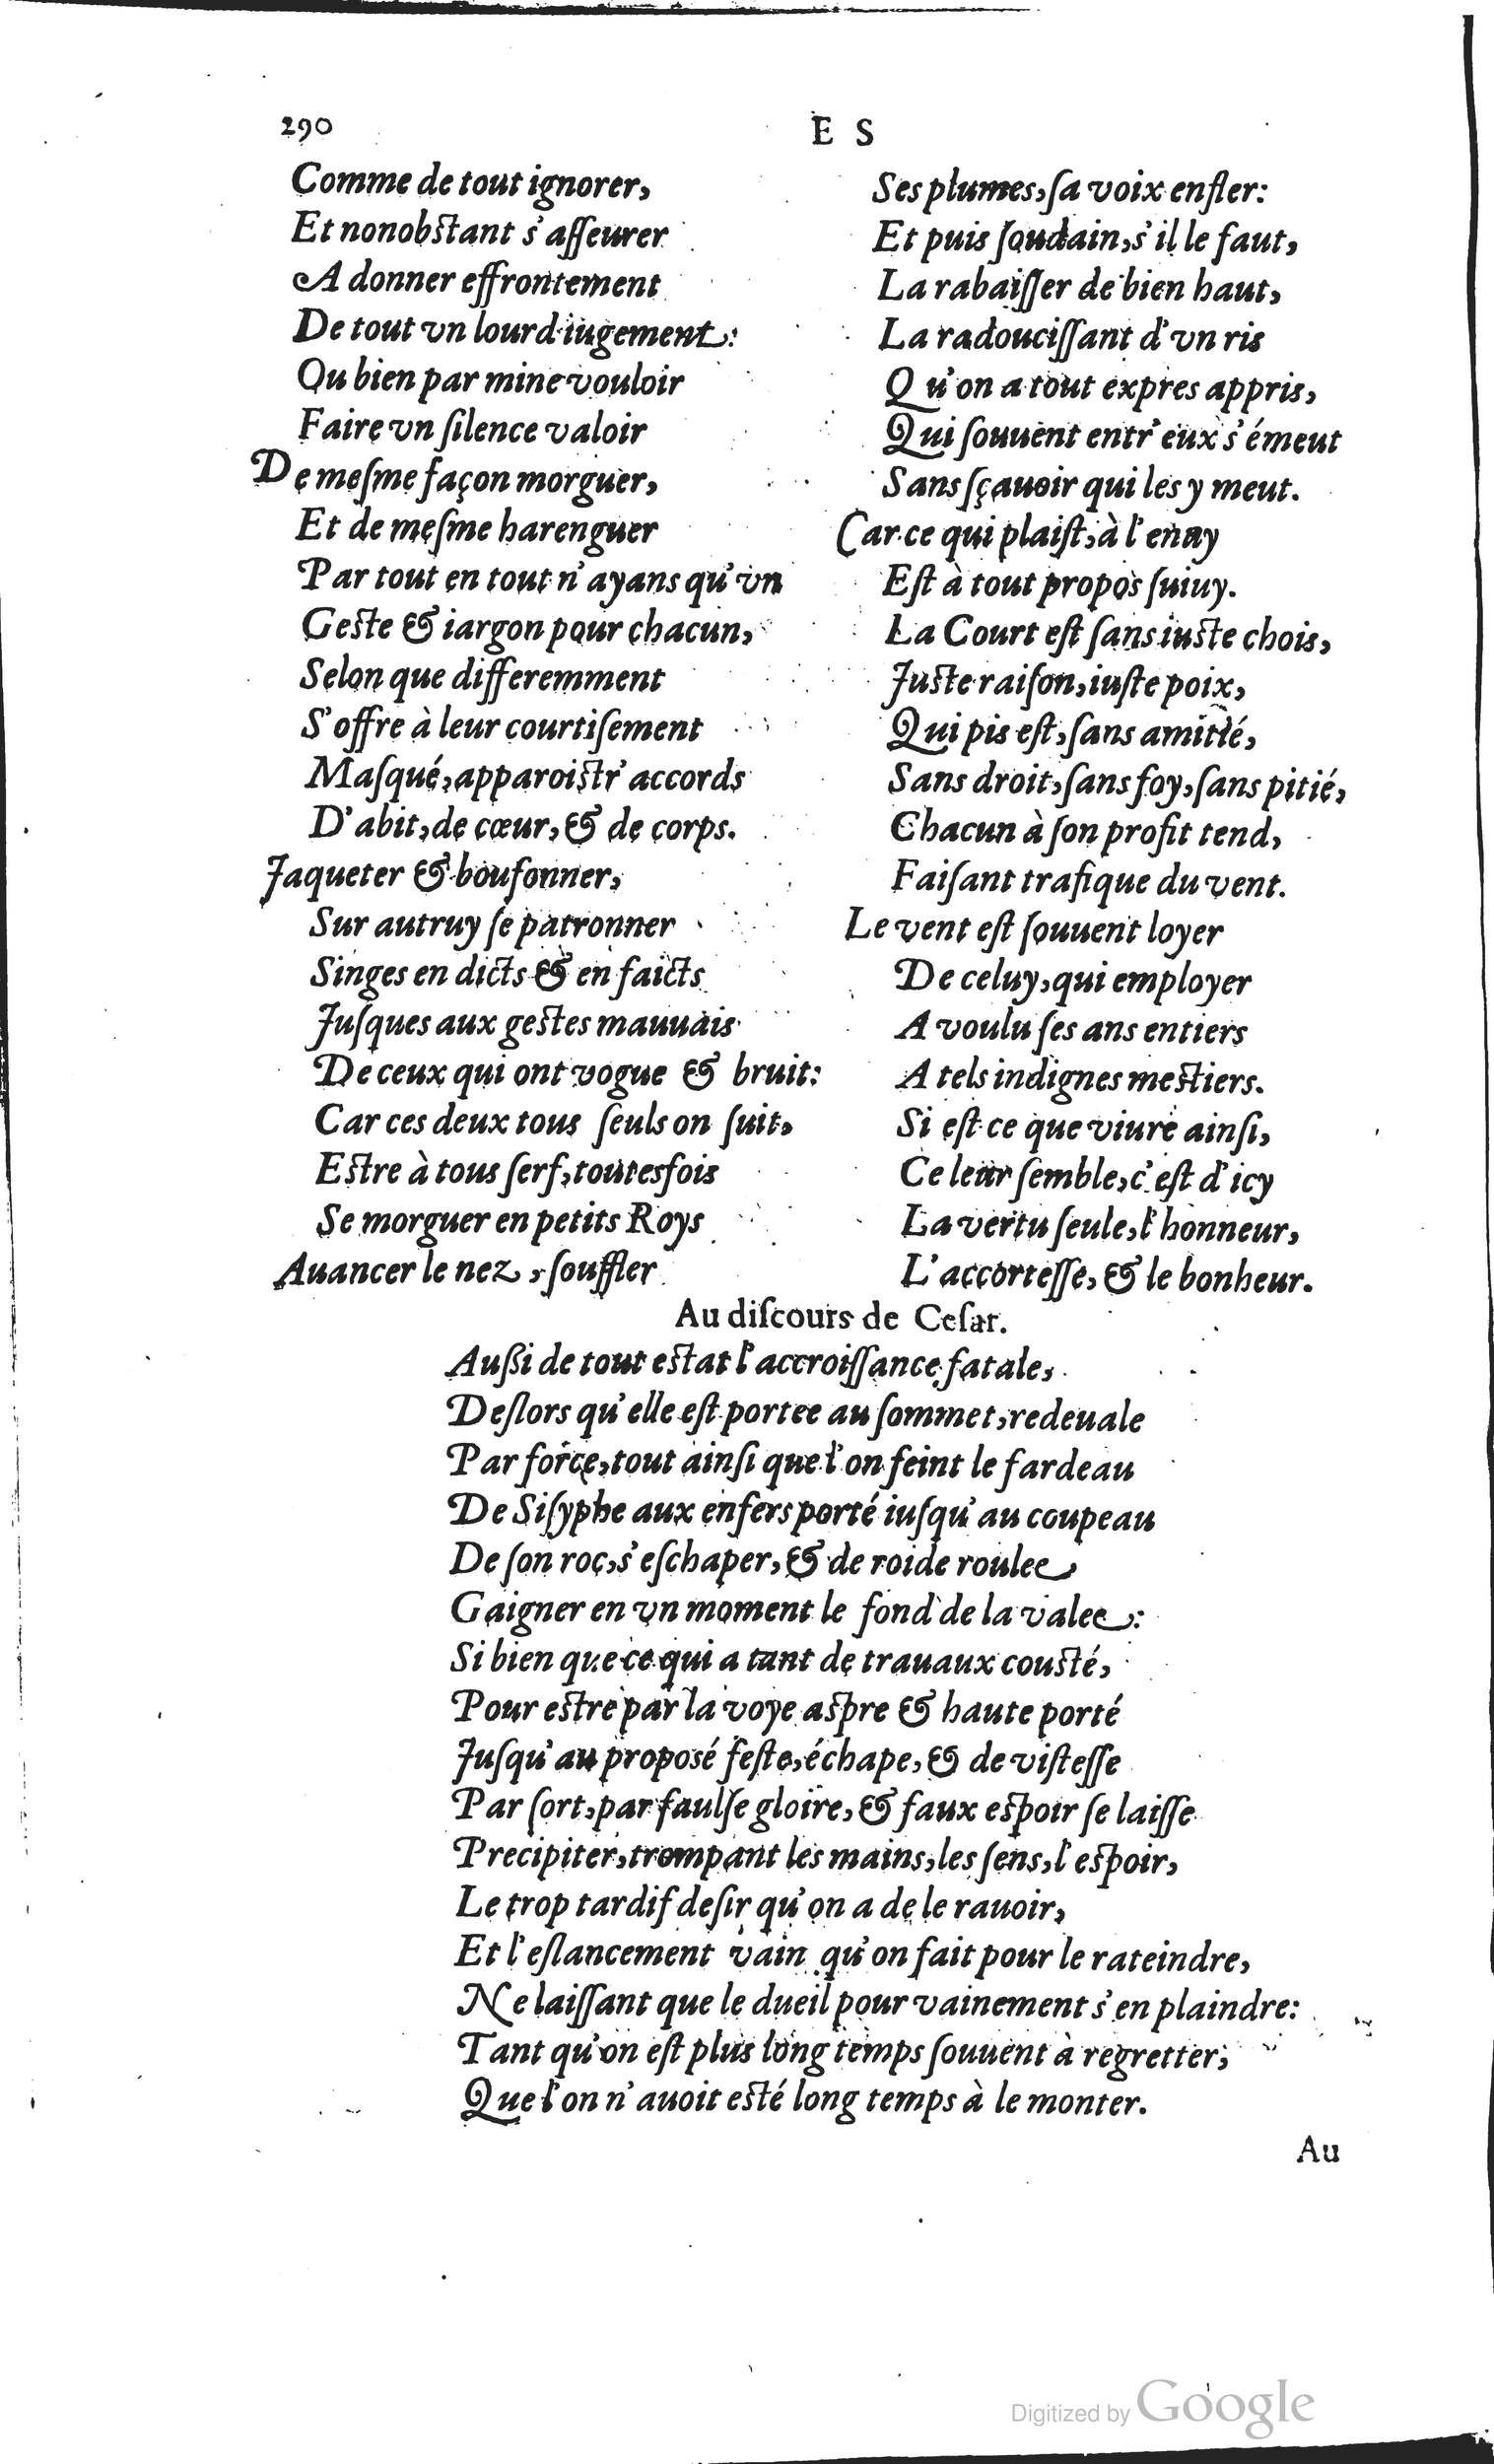 290
E S
Comme de tout ignorer,
Et nonobstant s'aſſeurer
A donner effrontement
De tout vn lourd iugement:
Ou bien par mine vouloir
Faire vn ſilence valoir
De meſme façon morguer,
Et de meſme harenguer
Par tout en tout n'ayans qu'vn
Geste & iargon pour chacun,
Selon que differemment
S'offre à leur courtiſement
Maſqué, apparoistr' accords
D'abit, de cœur, & de corps.
Jaqueter & boufonner,
Sur autruy ſe patronner
Singes en dicts & en faicts
Juſques aux gestes mauuais
De ceux qui ont vogue & bruit:
Car ces deux tous ſeuls on ſuit,
Estre à tous ſerf, toutesfois
Se morguer en petits Roys
Auancer le nez, ſouffler
Ses plumes, ſa voix enfler:
Et puis ſoudain, s'il le faut,
La rabaiſſer de bien haut,
La radouciſſant d'vn ris
Qu'on a tout expres appris,
Qui ſouuent entr' eux s'émeut
Sans ſçauoir qui les y meut.
Car ce qui plaiſt, à l'enuy
Eſt à tout propos ſuiuy.
La Court eſt ſans iuste chois,
Juste raiſon, iuſte poix,
Qui pis eſt, ſans amitié,
Sans droit, ſans foy, ſans pitié,
Chacun à ſon profit tend,
Faiſant trafique du vent.
Le vent eſt ſouuent loyer
De celuy, qui employer
A voulu ſes ans entiers
A tels indignes mestiers.
Si eſt ce que viure ainſi,
Ce leur ſemble, c'eſt d'icy
La vertu ſeule, l'honneur,
L'accorteſſe, & le bonheur.
Au diſcours de Ceſar.
Außi de tout estat l'accroiſſance fatale,
Deſlors qu'elle eſt portee au ſommet, redeuale
Par force, tout ainſi que l'on feint le fardeau
De Siſyphe aux enfers porté iuſqu'au coupeau
De ſon roc, s'eſchaper, & de roide roulee
Gaigner en vn moment le fond de la valee:
Si bien que ce qui a tant de trauaux cousté,
Pour estre par la voye aspre & haute porté
Juſqu'au proposé feſte, échape, & de viſteſſe
Par ſort, par faulſe gloire, & faux espoir ſe laiſſe
Precipiter, trompant les mains, les ſens, l'espoir,
Le trop tardif deſir qu'on a de le rauoir,
Et l'eſlancement vain qu'on fait pour le rateindre,
Ne laiſſant que le dueil pour vainement s'en plaindre:
Tant qu'on eſt plus long temps ſouuent à regretter,
Que l'on n'auoit esté long temps à le monter.
Au
Digitized by Google